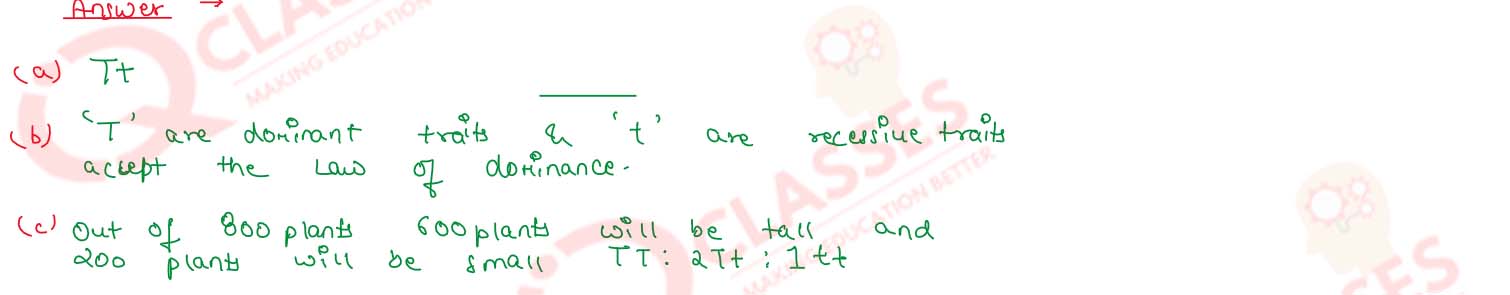 Answer →
(a) Tt
(b) 'T' are dominant traits & 't' are recessive traits
accept the Law of dominance.
(c) Out of 800 plants 600 plants will be tall and
200 plants will be small TT : 2Tt : 1tt
CLASSES
MAKING EDUCATION
CLASSES
MAKING EDUCATION BETTER
SSES